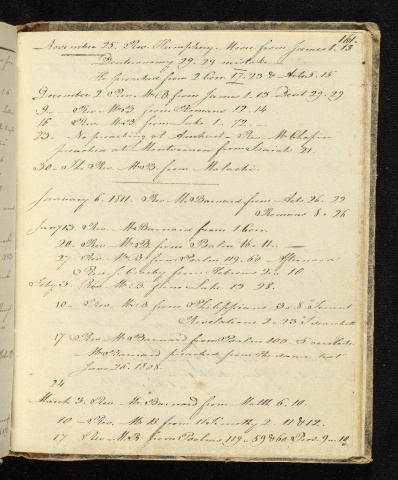 161.
November 25. Rev. Humphrey Moore from James 1. 13
Deuteronomy 29. 29 mistake
He preached from 2 Corn. 17. 23 & Acts 5. 15
December 2 Rev. Mr. B from James 1. 13 Deut 29. 29
9 — Rev. Mr. B. from Romans 12. 14
16 Rev. Mr. B. from Luke 1. 72
23. No preaching at Amherst — Rev. Mr. Chapin
preached at Montvernon from Isaiah 21.
30 — The Rev. Mr. B. from Malachi.
January 6. 1811. Rev. Mr. Barnard from Acts 26. 22
Romans 8. 26
Jany 13 Rev. Mr. Barnard from 1 Corn.
20. Rev. Mr. B from Psalm 16. 11. —
27 Rev. Mr. B. from Psalm 119. 60 — Afternoon
Rev. J. from Hebrews 2. 10
Feby 3. Rev. Mr. B. from Luke 13. 28.
10 — Rev. Mr. B from Philippians 3. 8
Revelations 2. 23
17 Rev. Mr. Barnard from Psalm 103. 8
Mr. Barnard preached from the same text
June 26. 1808.
24
March 3. Rev. Mr. Barnard from Matth 6. 10.
10 — Rev. Mr. B from 1 Timothy 2. 11 & 12.
17 Rev. Mr. B. from Psalms 119 - 59 & 60. Prov. 9 - 12